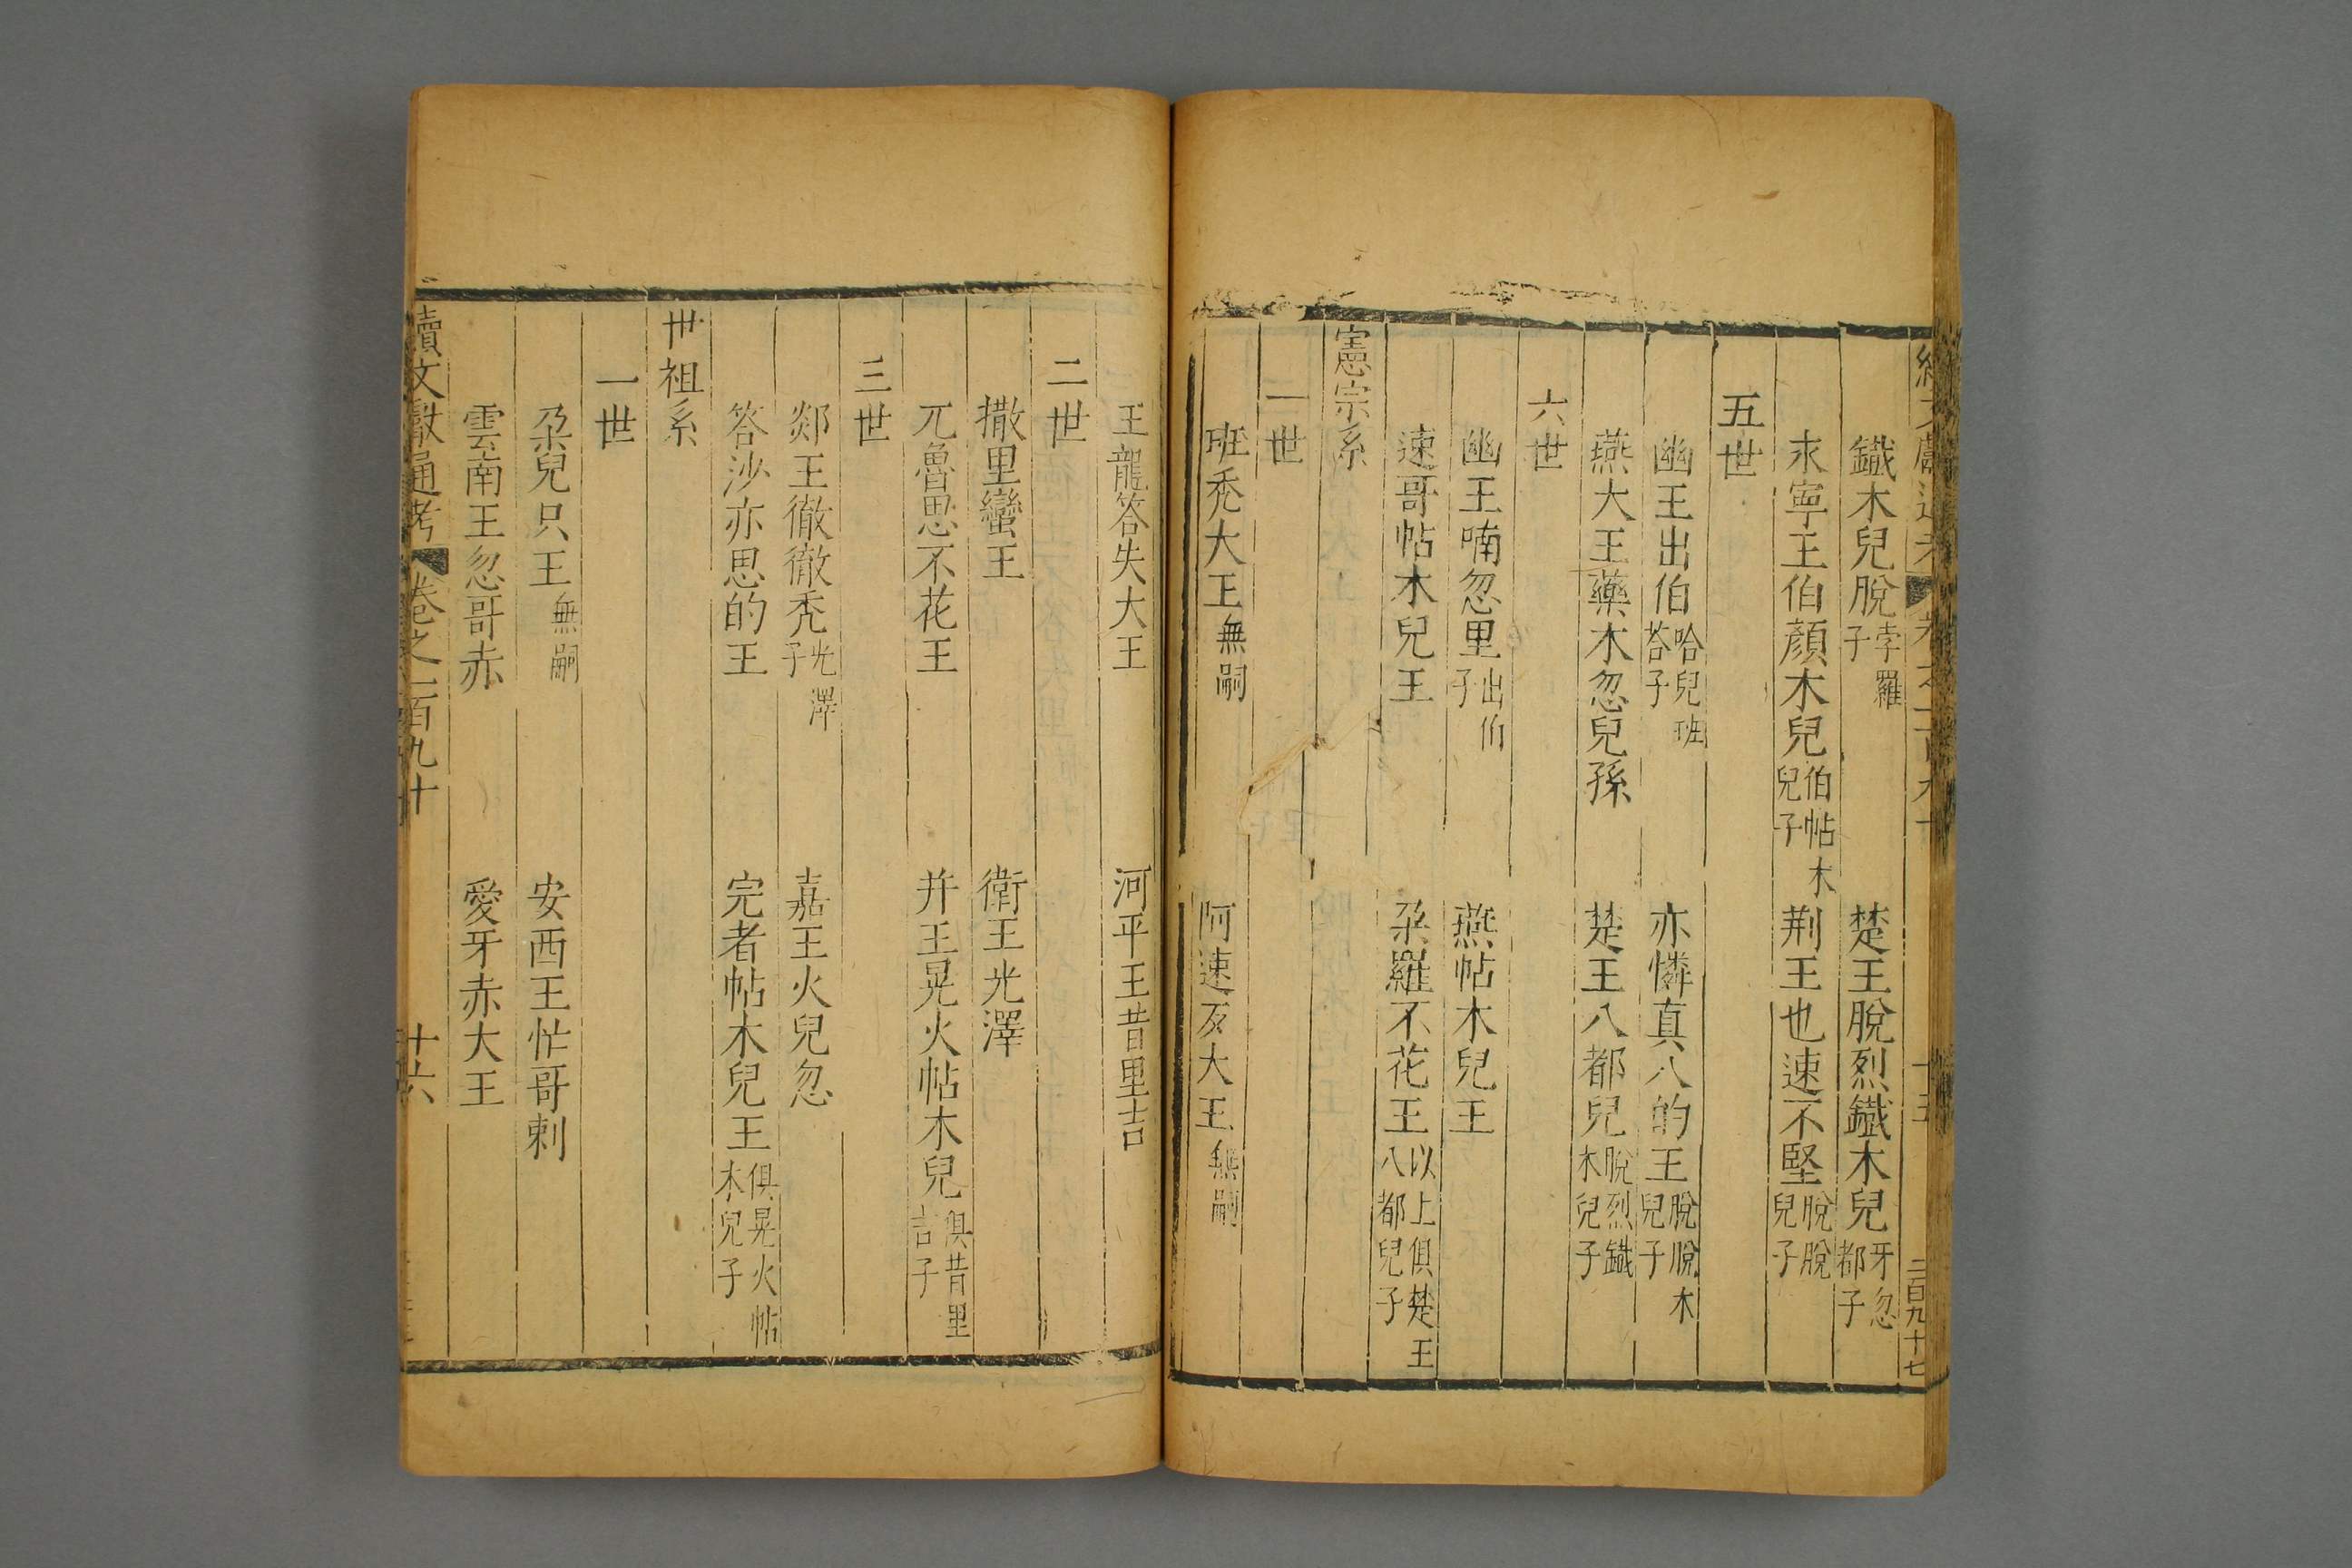 鐵木兒脫孛羅子 楚王脫烈鐵木兒牙忽都子
永寧王伯顏木兒伯帖木兒子 荆王也速不堅脫脫兒子
五世
幽王出伯哈兒班荅子 亦憐真八的王脫脫木兒子
燕大王藥木忽兒孫 楚王八都兒脫烈鐵木兒子
六世
幽王喃忽里出伯子 燕帖木兒王
速哥帖木兒王 朶羅不花王以上俱楚王八都兒子
憲宗系
一世
班禿大王無嗣 阿速歹大王無嗣
王龍答失大王 河平王昔里吉
二世
撒里蠻王 衛王光澤
兀魯思不花王 并王晃火帖木兒俱昔里吉子
三世
郯王徹徹禿光澤子 嘉王火兒忽
答沙亦思的王 完者帖木兒王俱晃火帖木兒子
世祖系
一世
朶兒只王無嗣 安西王忙哥剌
雲南王忽哥赤 愛牙赤大王
續文獻通考 卷之二百九十 十六